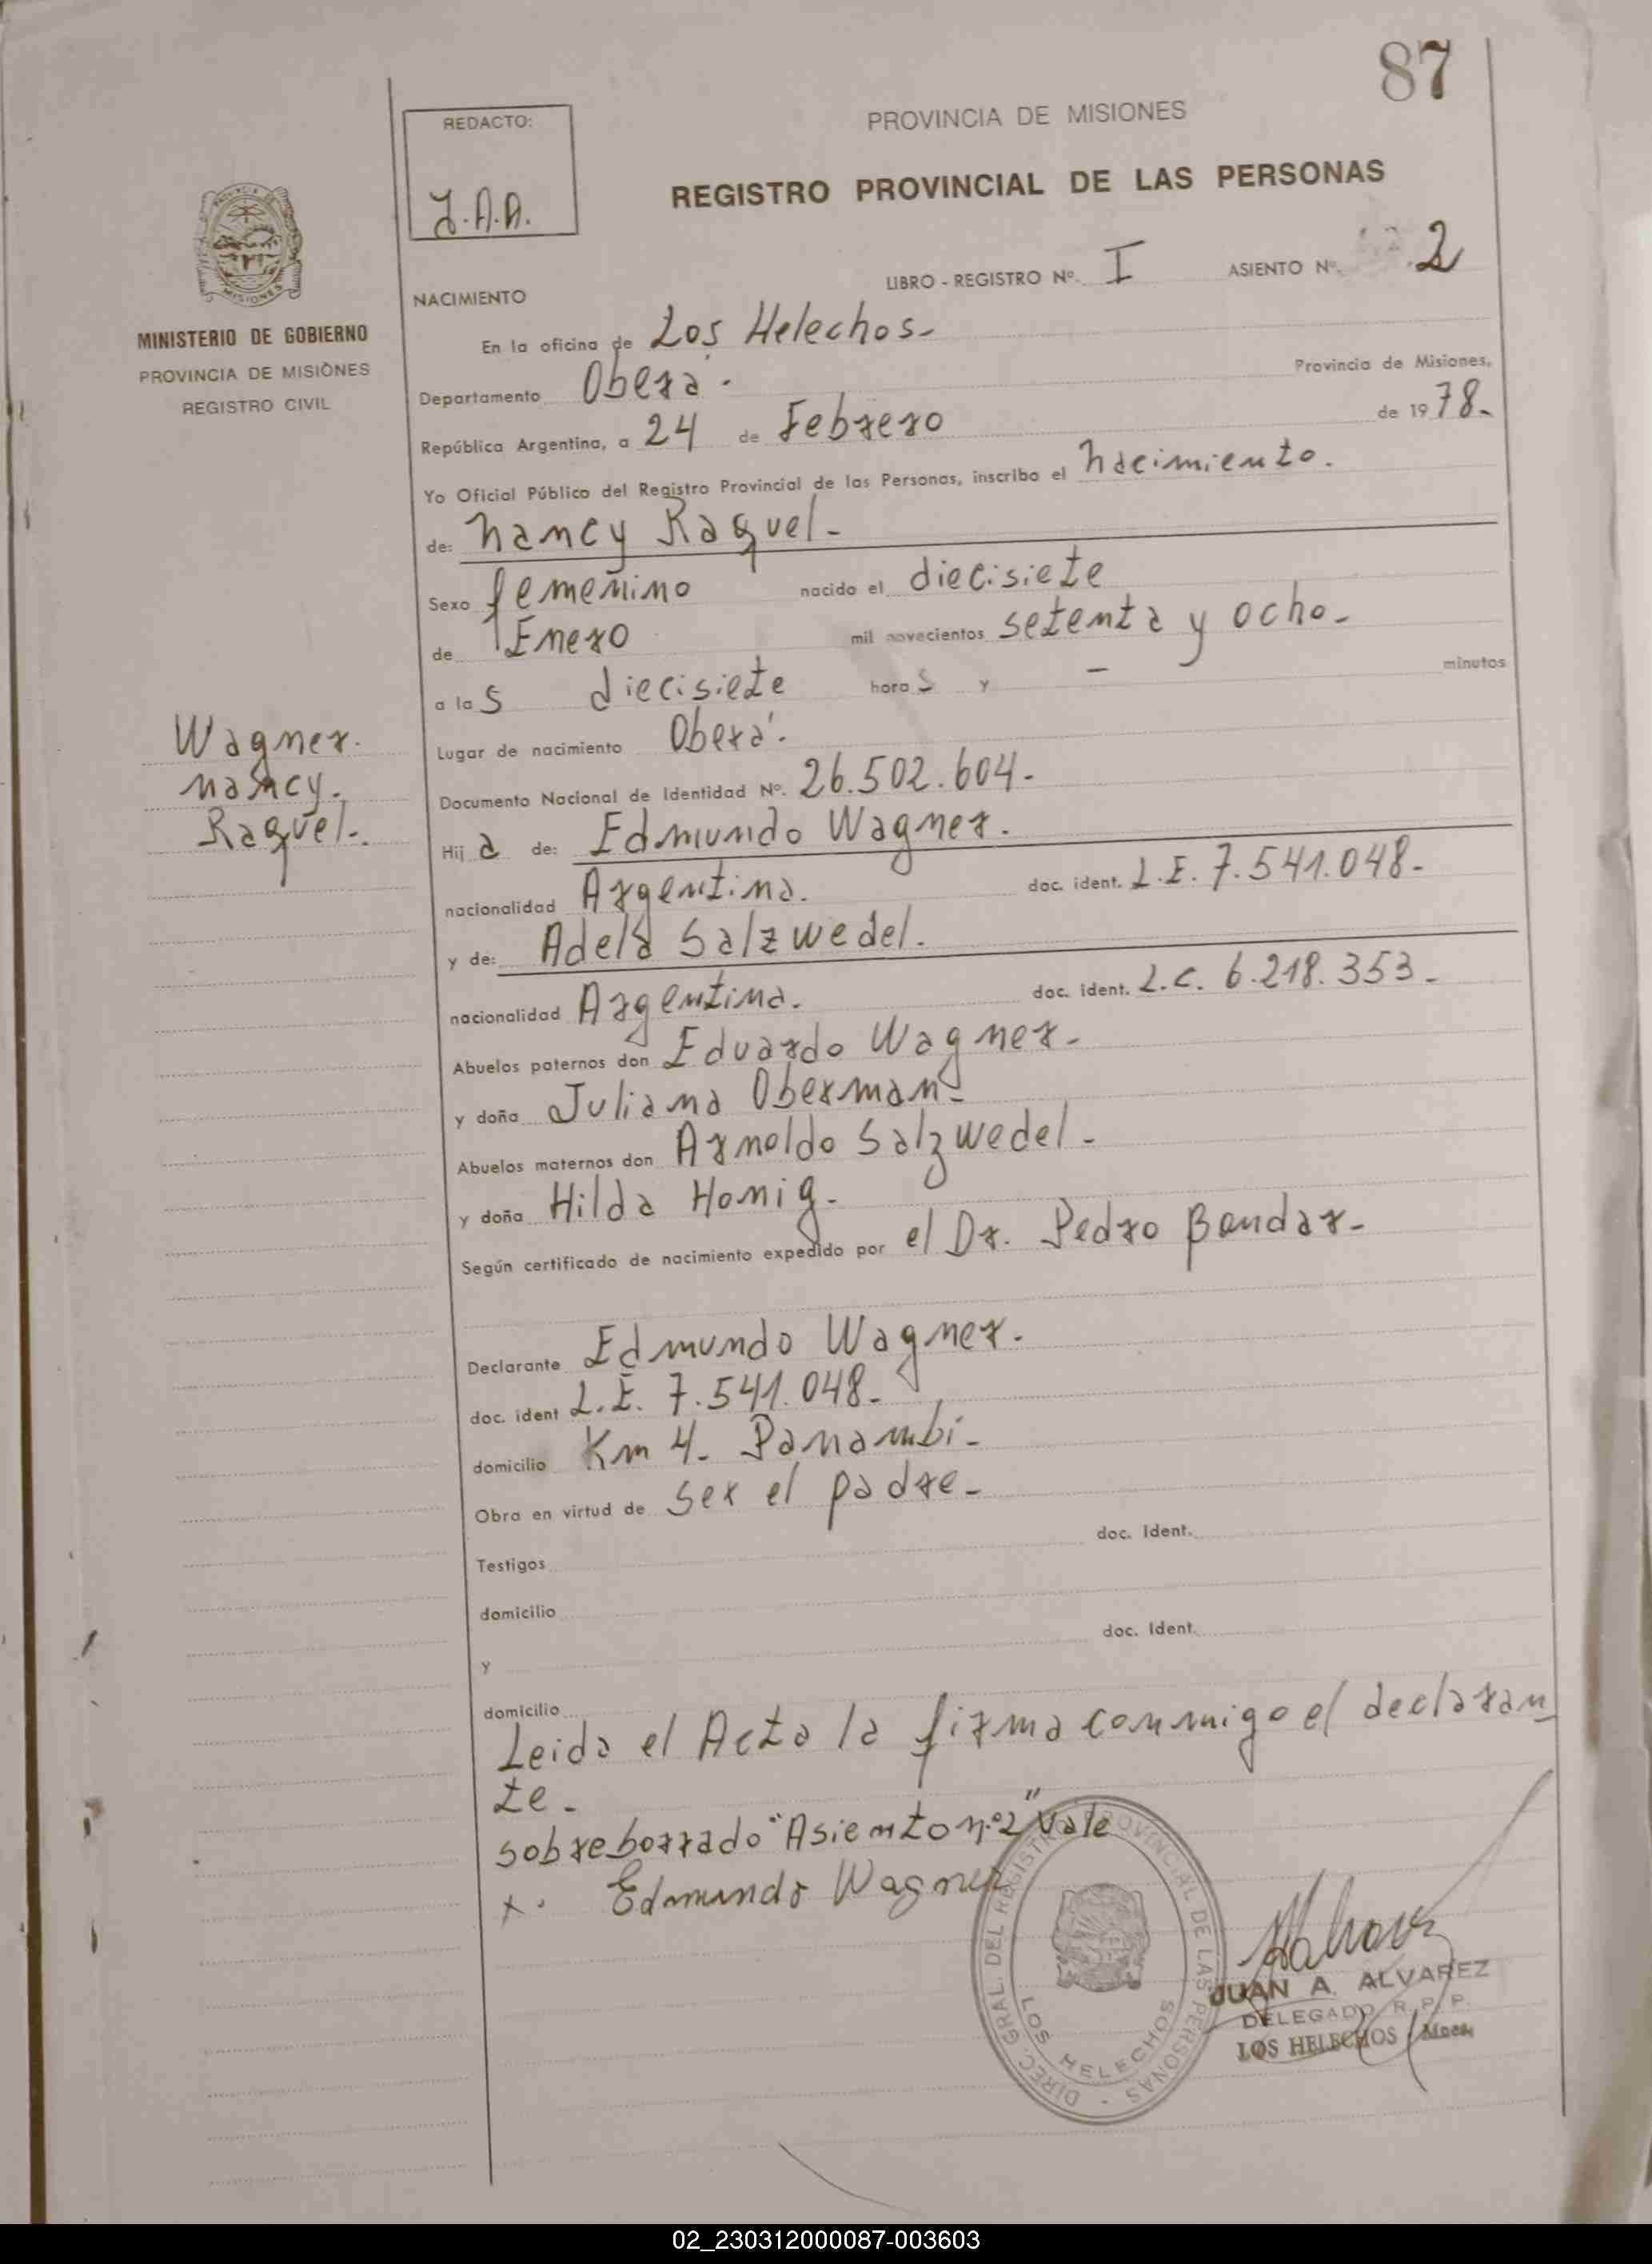 87
REDACTO:
J.A.A.
PROVINCIA DE MISIONES
REGISTRO PROVINCIAL DE LAS PERSONAS
LIBRO - REGISTRO Nº. I ASIENTO Nº. 2
MISIONES
MINISTERIO DE GOBIERNO
PROVINCIA DE MISIONES
REGISTRO CIVIL
NACIMIENTO
En la oficina de Los Helechos-
Departamento Oberá. Provincia de Misiones,
República Argentina, a 24 de Febrero de 19 78-
Yo Oficial Público del Registro Provincial de las Personas, inscribo el nacimiento.
de: Nancy Raquel-
Sexo femenino nacido el diecisiete
de Enero mil novecientos setenta y ocho-
a las diecisiete horas y - minutos
Lugar de nacimiento Oberá.
Documento Nacional de Identidad Nº. 26.502.604-
Wagner.
Nancy.
Raquel-.
Hij a de: Edmundo Wagner.
nacionalidad Argentina. doc. ident. L.E. 7.541.048-
y de: Adela Salzwedel.
nacionalidad Argentina. doc. ident. L.C. 6.218.353-
Abuelos paternos don Eduardo Wagner-
y doña Juliana Oberman-
Abuelos maternos don Arnoldo Salzwedel-
y doña Hilda Honig-
Según certificado de nacimiento expedido por el Dr. Pedro Bandar-
Declarante Edmundo Wagner.
doc. ident L.E. 7.541.048-
domicilio Km 4- Panambi-
Obra en virtud de ser el padre-
doc. Ident.
Testigos
domicilio
doc. Ident.
y
domicilio
Leida el Acta la firma conmigo el declaran
te-
sobreborrado "Asiento nº2" Vale
x. Edmundo Wagner
DIREC. GRAL. DEL REGISTRO PROVINCIAL DE LAS PERSONAS
LOS HELECHOS
JUAN A. ALVAREZ
DELEGADO R. P. P.
LOS HELECHOS - Mnes.
02_230312000087-003603